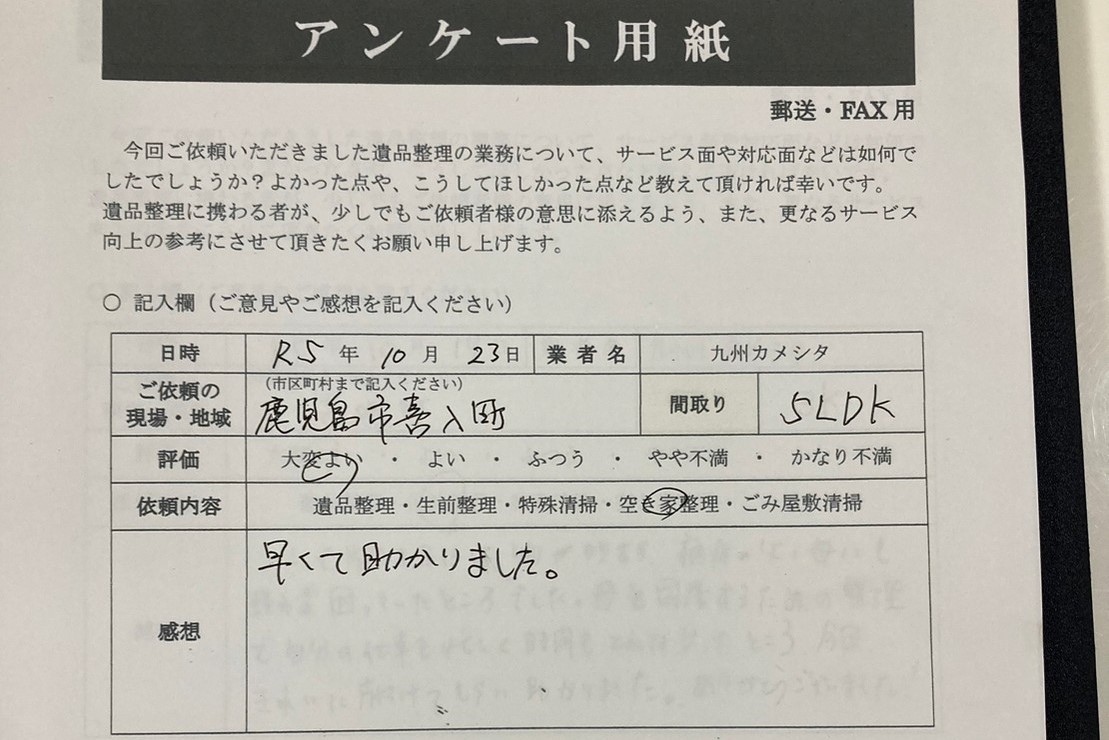 アンケート用紙
郵送・FAX用
今回ご依頼いただきました遺品整理の業務について、サービス面や対応面などは如何で
したでしょうか？よかった点や、こうしてほしかった点など教えて頂ければ幸いです。
遺品整理に携わる者が、少しでもご依頼者様の意思に添えるよう、また、更なるサービス
向上の参考にさせて頂きたくお願い申し上げます。
○ 記入欄（ご意見やご感想を記入ください）
日時 R5 年 10 月 23日 業者名 九州カメシタ
ご依頼の
現場・地域
（市区町村まで記入ください）
鹿児島市喜入町
間取り 5LDK
評価 大変よい ・ よい ・ ふつう ・ やや不満 ・ かなり不満
依頼内容 遺品整理・生前整理・特殊清掃・空き家整理・ごみ屋敷清掃
感想
早くて助かりました。